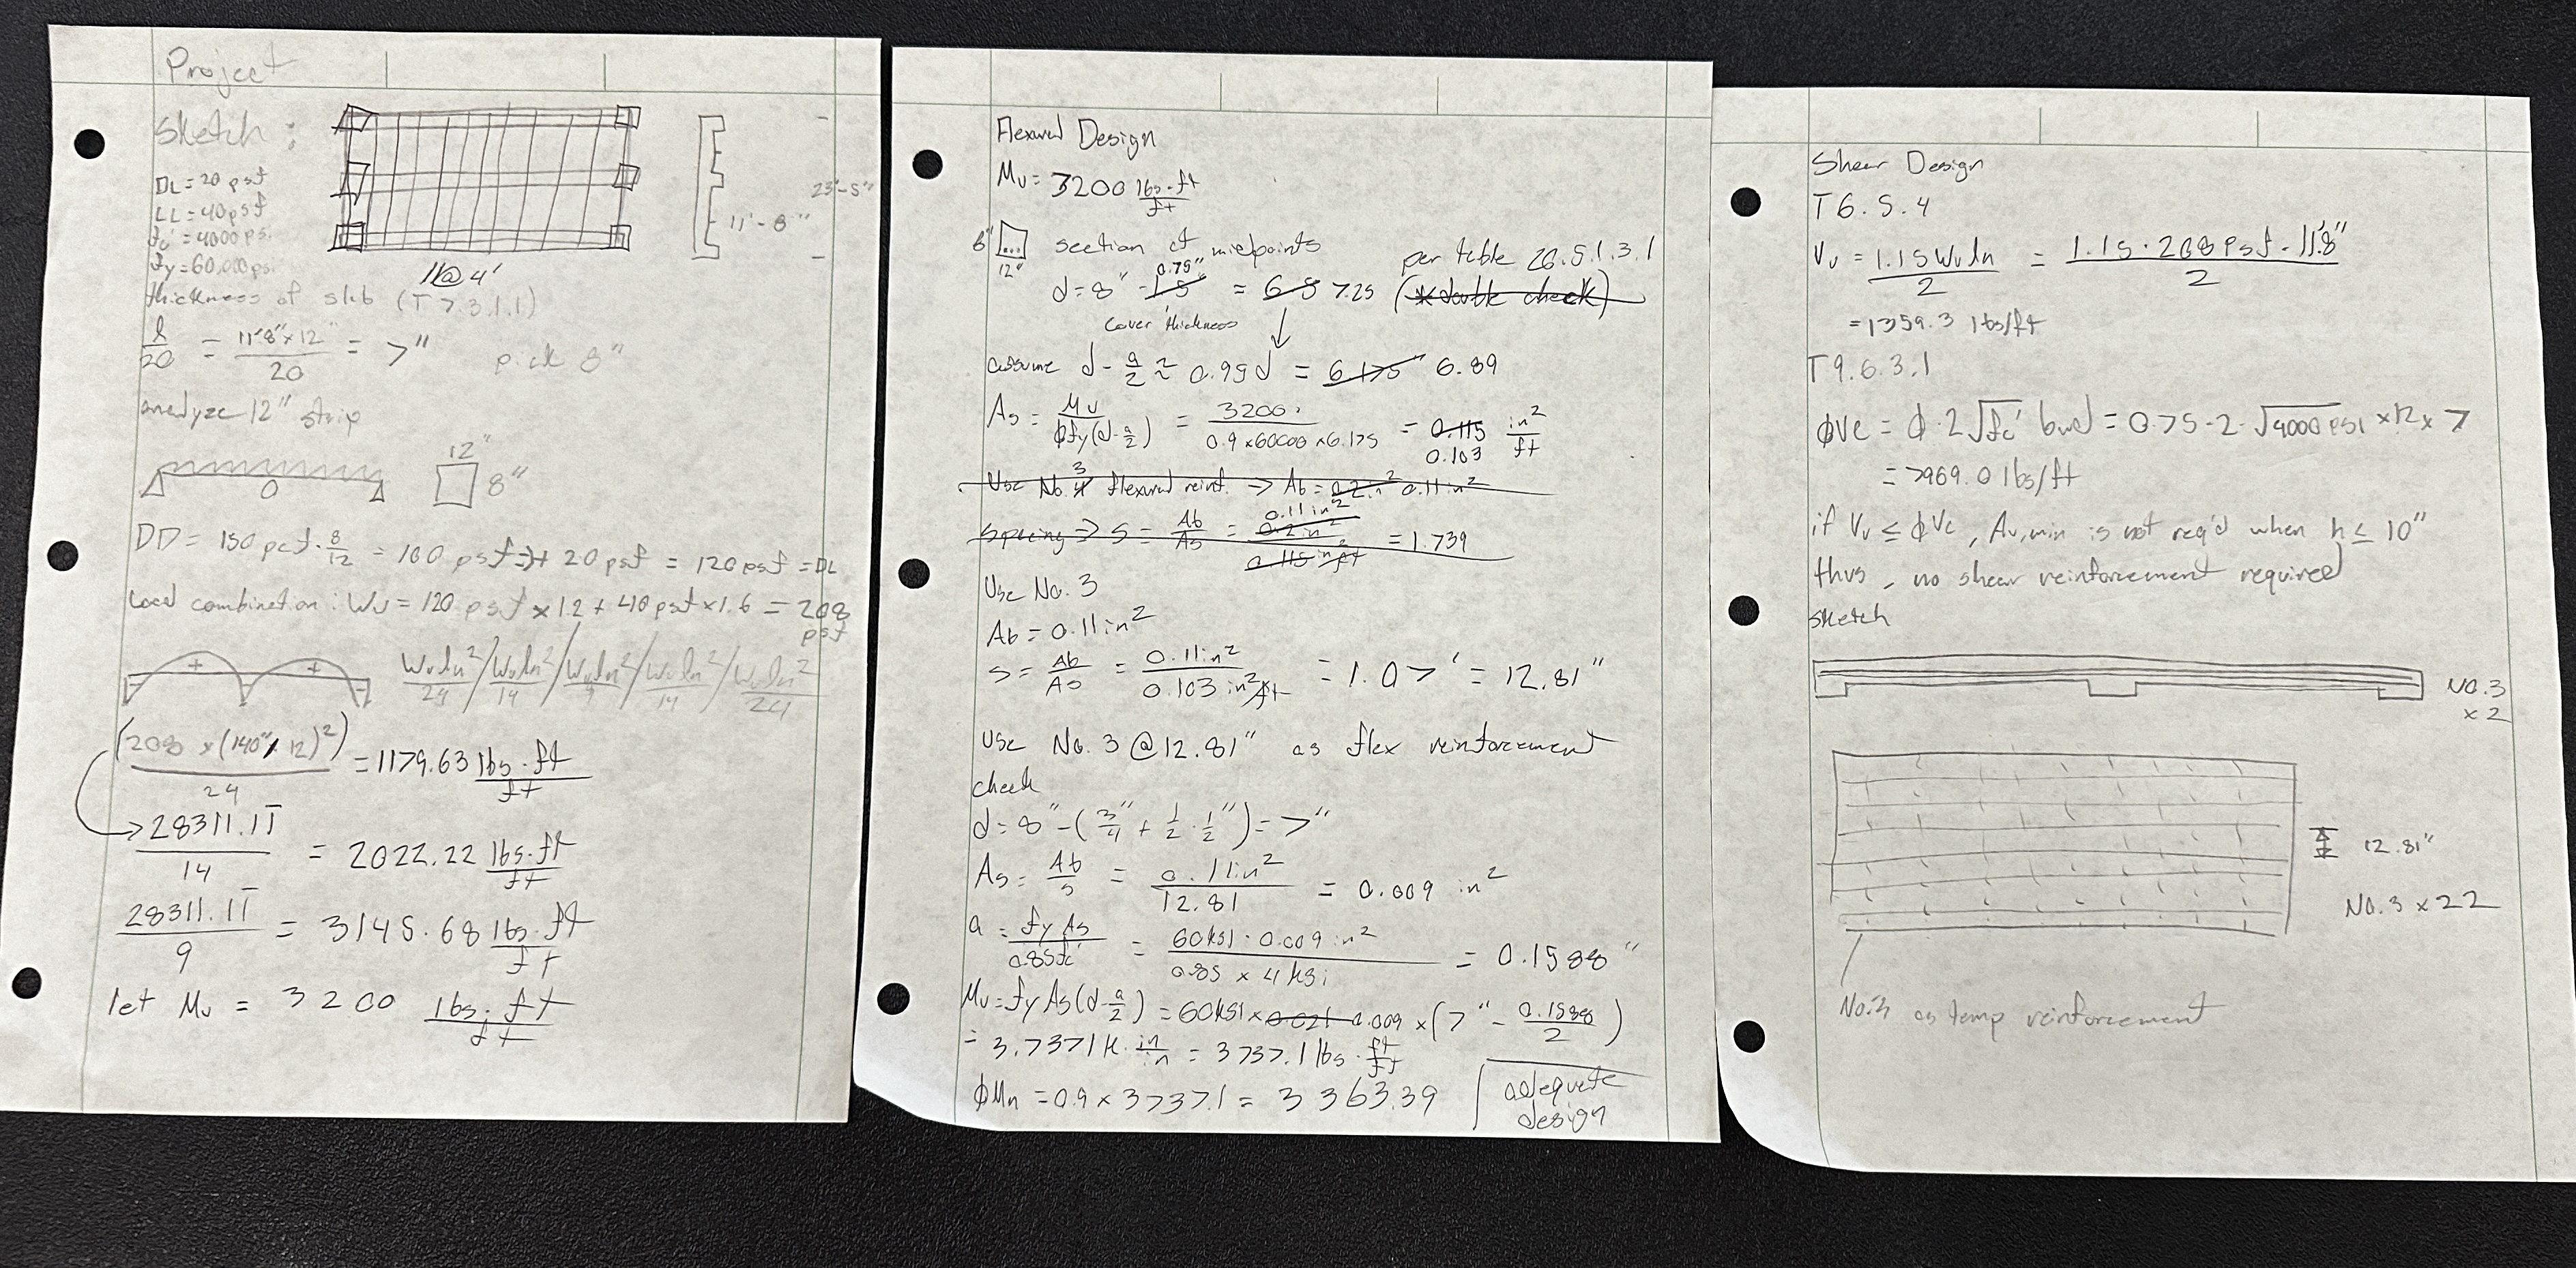 Project
Sketch:
DL = 20 psf
LL = 40 psf
fc' = 4000 psi
fy = 60,000 psi
11@4'
11'-8"
23'-5"
thickness of slab (T 7.3.1.1)
l/20 = 11'8" x 12"/20 = 7" pick 8"
analyze 12" strip
12"
8"
DD = 150 pcf · 8/12 = 100 psf + 20 psf = 120 psf = DL
Load combination: Wu = 120 psf x 1.2 + 40 psf x 1.6 = 208 psf
+ +
Wu ln²/24 / Wu ln²/14 / Wu ln²/9 / Wu ln²/14 / Wu ln²/24
(208 x (140"/12)²)/24 = 1179.63 lbs·ft/ft
28311.11/14 = 2022.22 lbs·ft/ft
28311.11/9 = 3145.68 lbs·ft/ft
let Mu = 3200 lbs·ft/ft
Flexural Design
Mu = 3200 lbs·ft/ft
8" 12" section at midpoints per table 20.5.1.3.1
d = 8" - 1.5 0.75" = 6.5 7.25 (*double check)
cover thickness
assume d - a/2 ≈ 0.95d = 6.175" 6.89
As = Mu/ϕfy(d-a/2) = 3200/0.9 x 60000 x 6.175 = 0.115 0.103 in²/ft
Use No. 4 3 flexural reinf. → Ab = 0.2in² 0.11in²
spacing ⇒ s = Ab/As = 0.2in² 0.11in²/0.115 in²/ft = 1.739
Use No. 3
Ab = 0.11in²
s = Ab/As = 0.11in²/0.103 in²/ft = 1.07' = 12.81"
use No. 3 @ 12.81" as flex reinforcement
check
d = 8" - (3/4" + 1/2 · 1/2") = 7"
As = Ab/s = 0.11in²/12.81 = 0.009 in²
a = fy As/0.85fc' = 60ksi · 0.009 in²/0.85 x 4 ksi = 0.1588"
Mu = fy As(d-a/2) = 60ksi x 0.021 0.009 x (7" - 0.1588/2)
= 3.7371 k·in/in = 3737.1 lbs·ft/ft
ϕMn = 0.9 x 3737.1 = 3363.39
adequate
design
Shear Design
T6.5.4
Vu = 1.15 Wu ln/2 = 1.15 · 208 psf · 11'8"/2
= 1359.3 lbs/ft
T9.6.3.1
ϕVc = ϕ·2√fc' bwd = 0.75·2·√4000 psi x 12 x 7
= 7969.0 lbs/ft
if Vu ≤ ϕVc, Av,min is not req'd when h ≤ 10"
thus, no shear reinforcement required
sketch
No.3
x 2
12.81"
No.3 x 22
No.3 as temp reinforcement